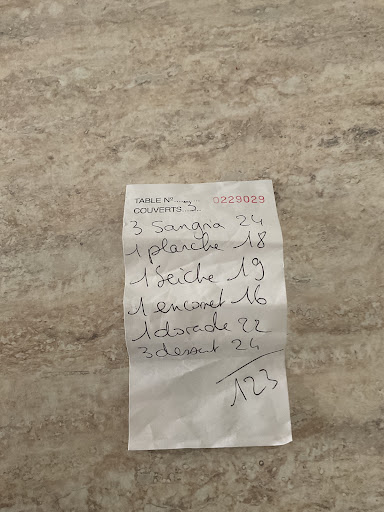 TABLE N° ........ 0229029
COUVERTS..3..
3 Sangria 24
1 planche 18
1 Seiche 19
1 encornet 16
1 dorade 22
3 dessert 24
123